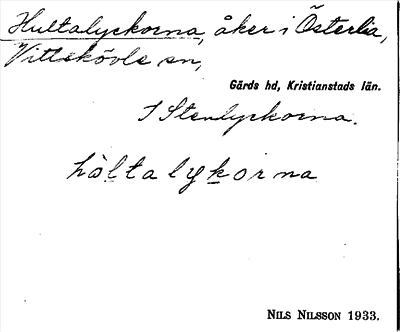 Hultalyckorna, åker i Österlia,
Vittskövle sn,
Gärds hd, Kristianstads län.
I Stenlyckorna.
hàltalykorna
NILS NILSSON 1933.